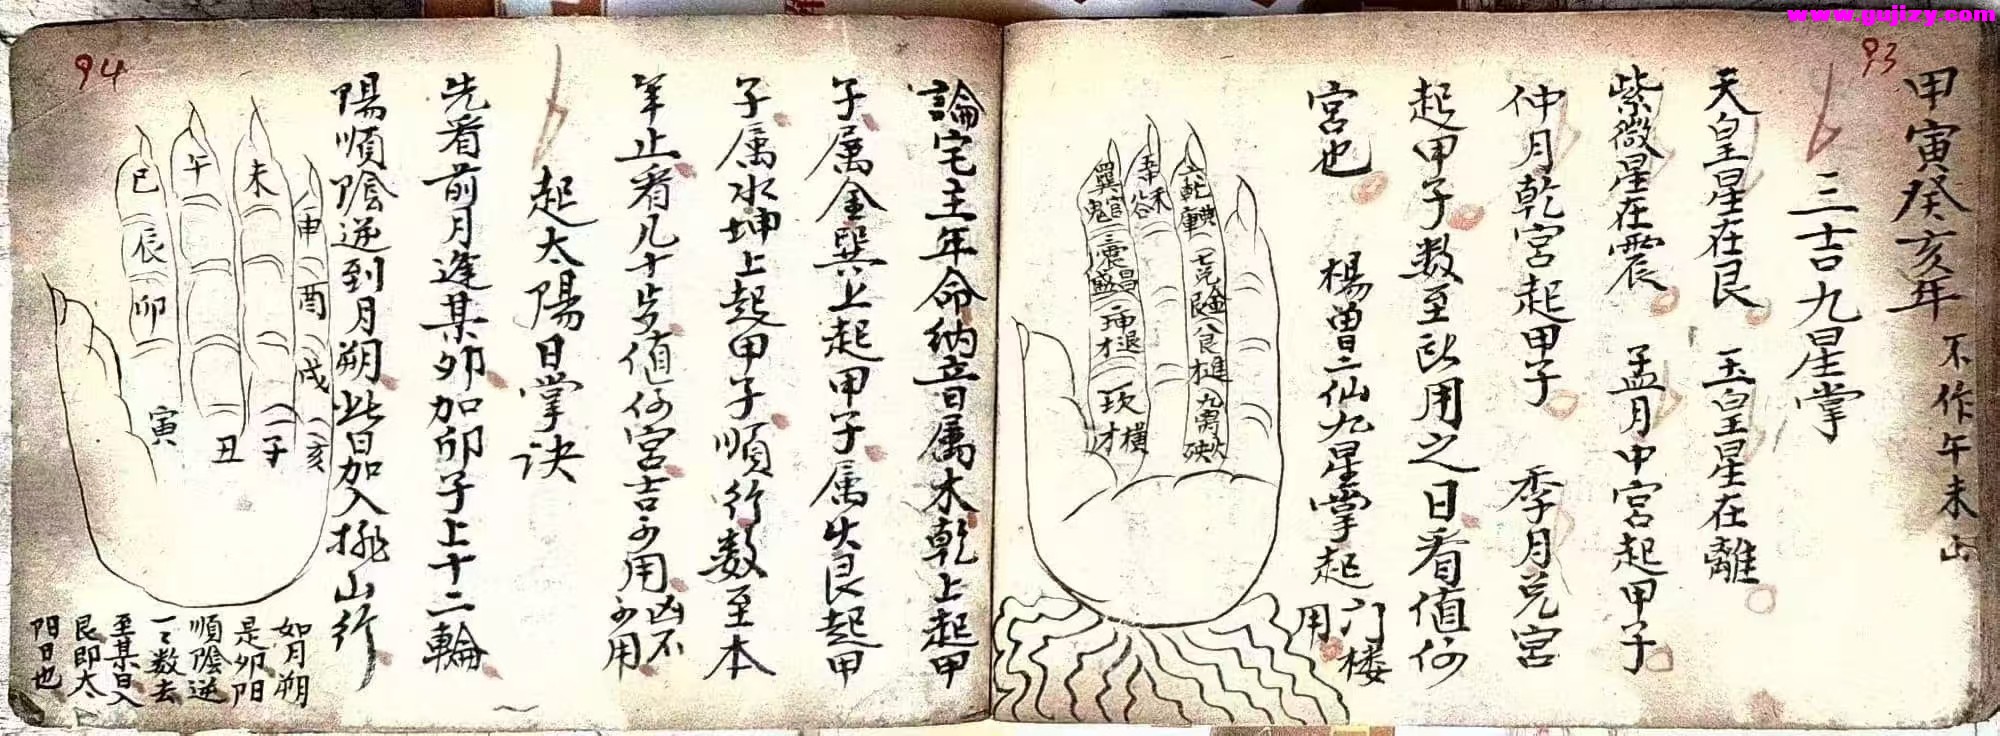 www.gujizy.com
93
甲寅癸亥年 不作午未山
三吉九星掌
天皇星在艮 玉皇星在離
紫微星在震 孟月中宮起甲子
仲月乾宮起甲子 季月兑宮
起甲子数至所用之日看值何
宮也 楊曽二仙九星掌起门楼
用
六乾興
七兑
八艮
九离
辛禄
四巽
三震昌盛
二坤退才
坎横才
論宅主年命纳音属木乾上起甲
子属金巽上起甲子属火艮起甲
子属水坤上起甲子順行数至本
年止看几十岁值何宮吉可用凶不
可用
起太陽日掌決
先看前月逢某卯加卯子上十二輪
陽順陰逆到月朔此日加入挑山行
94
巳
午
未
申
辰
酉
卯
戌
寅
丑
子
亥
如月朔
是卯阳
順陰逆
一乀数去
至某日入
艮即太
阳日也